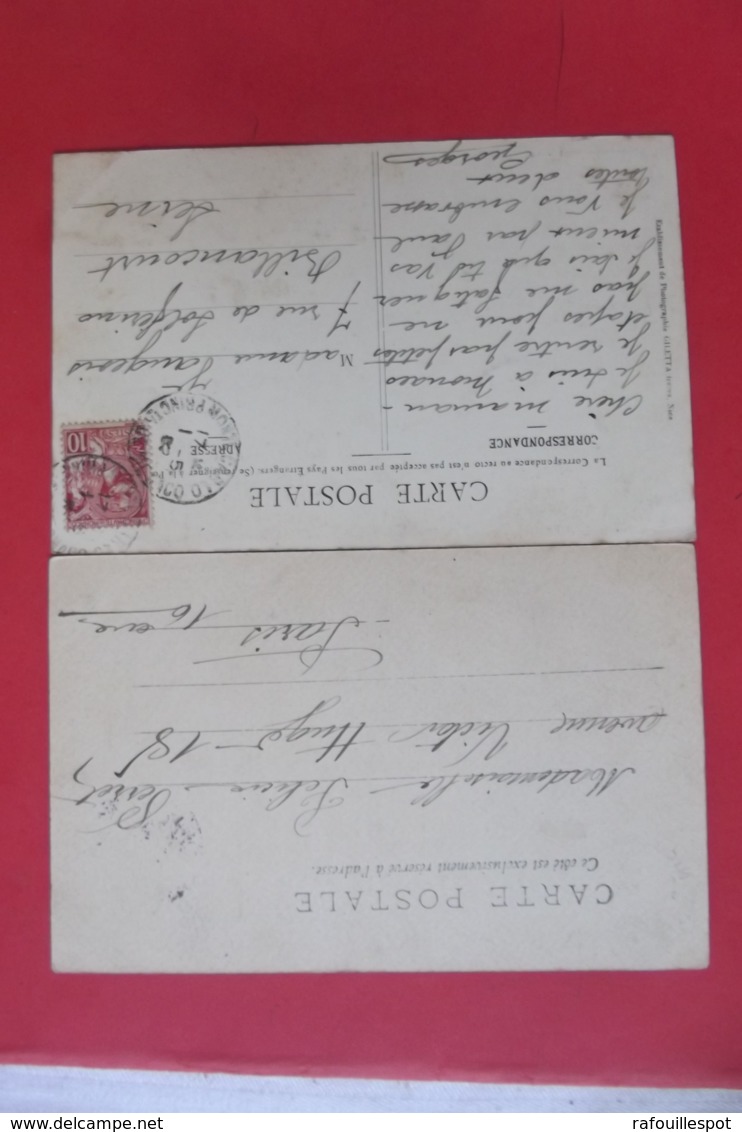 CARTE POSTALE
Ce côté est exclusivement réservé à l'adresse.
Mademoiselle
avenue Victor Hugo - 18
Paris 16 eme
CARTE POSTALE
La Correspondance au recto n'est pas acceptée par tous les Pays Etrangers. (Se renseigner
CORRESPONDANCE
ADRESSE
Chère maman -
Je suis a Monaco
Je rentre par petites
étapes pour ne
pas me fatiguer
Je sais que tu vas
mieux par Paul
Je vous embrasse
toutes deux
Georges
Madame
7 rue de Solférino
Billancourt
Seine
Etablissement de Photographie GILETTA frères, Nice
10
delcampe.net
rafouillespot